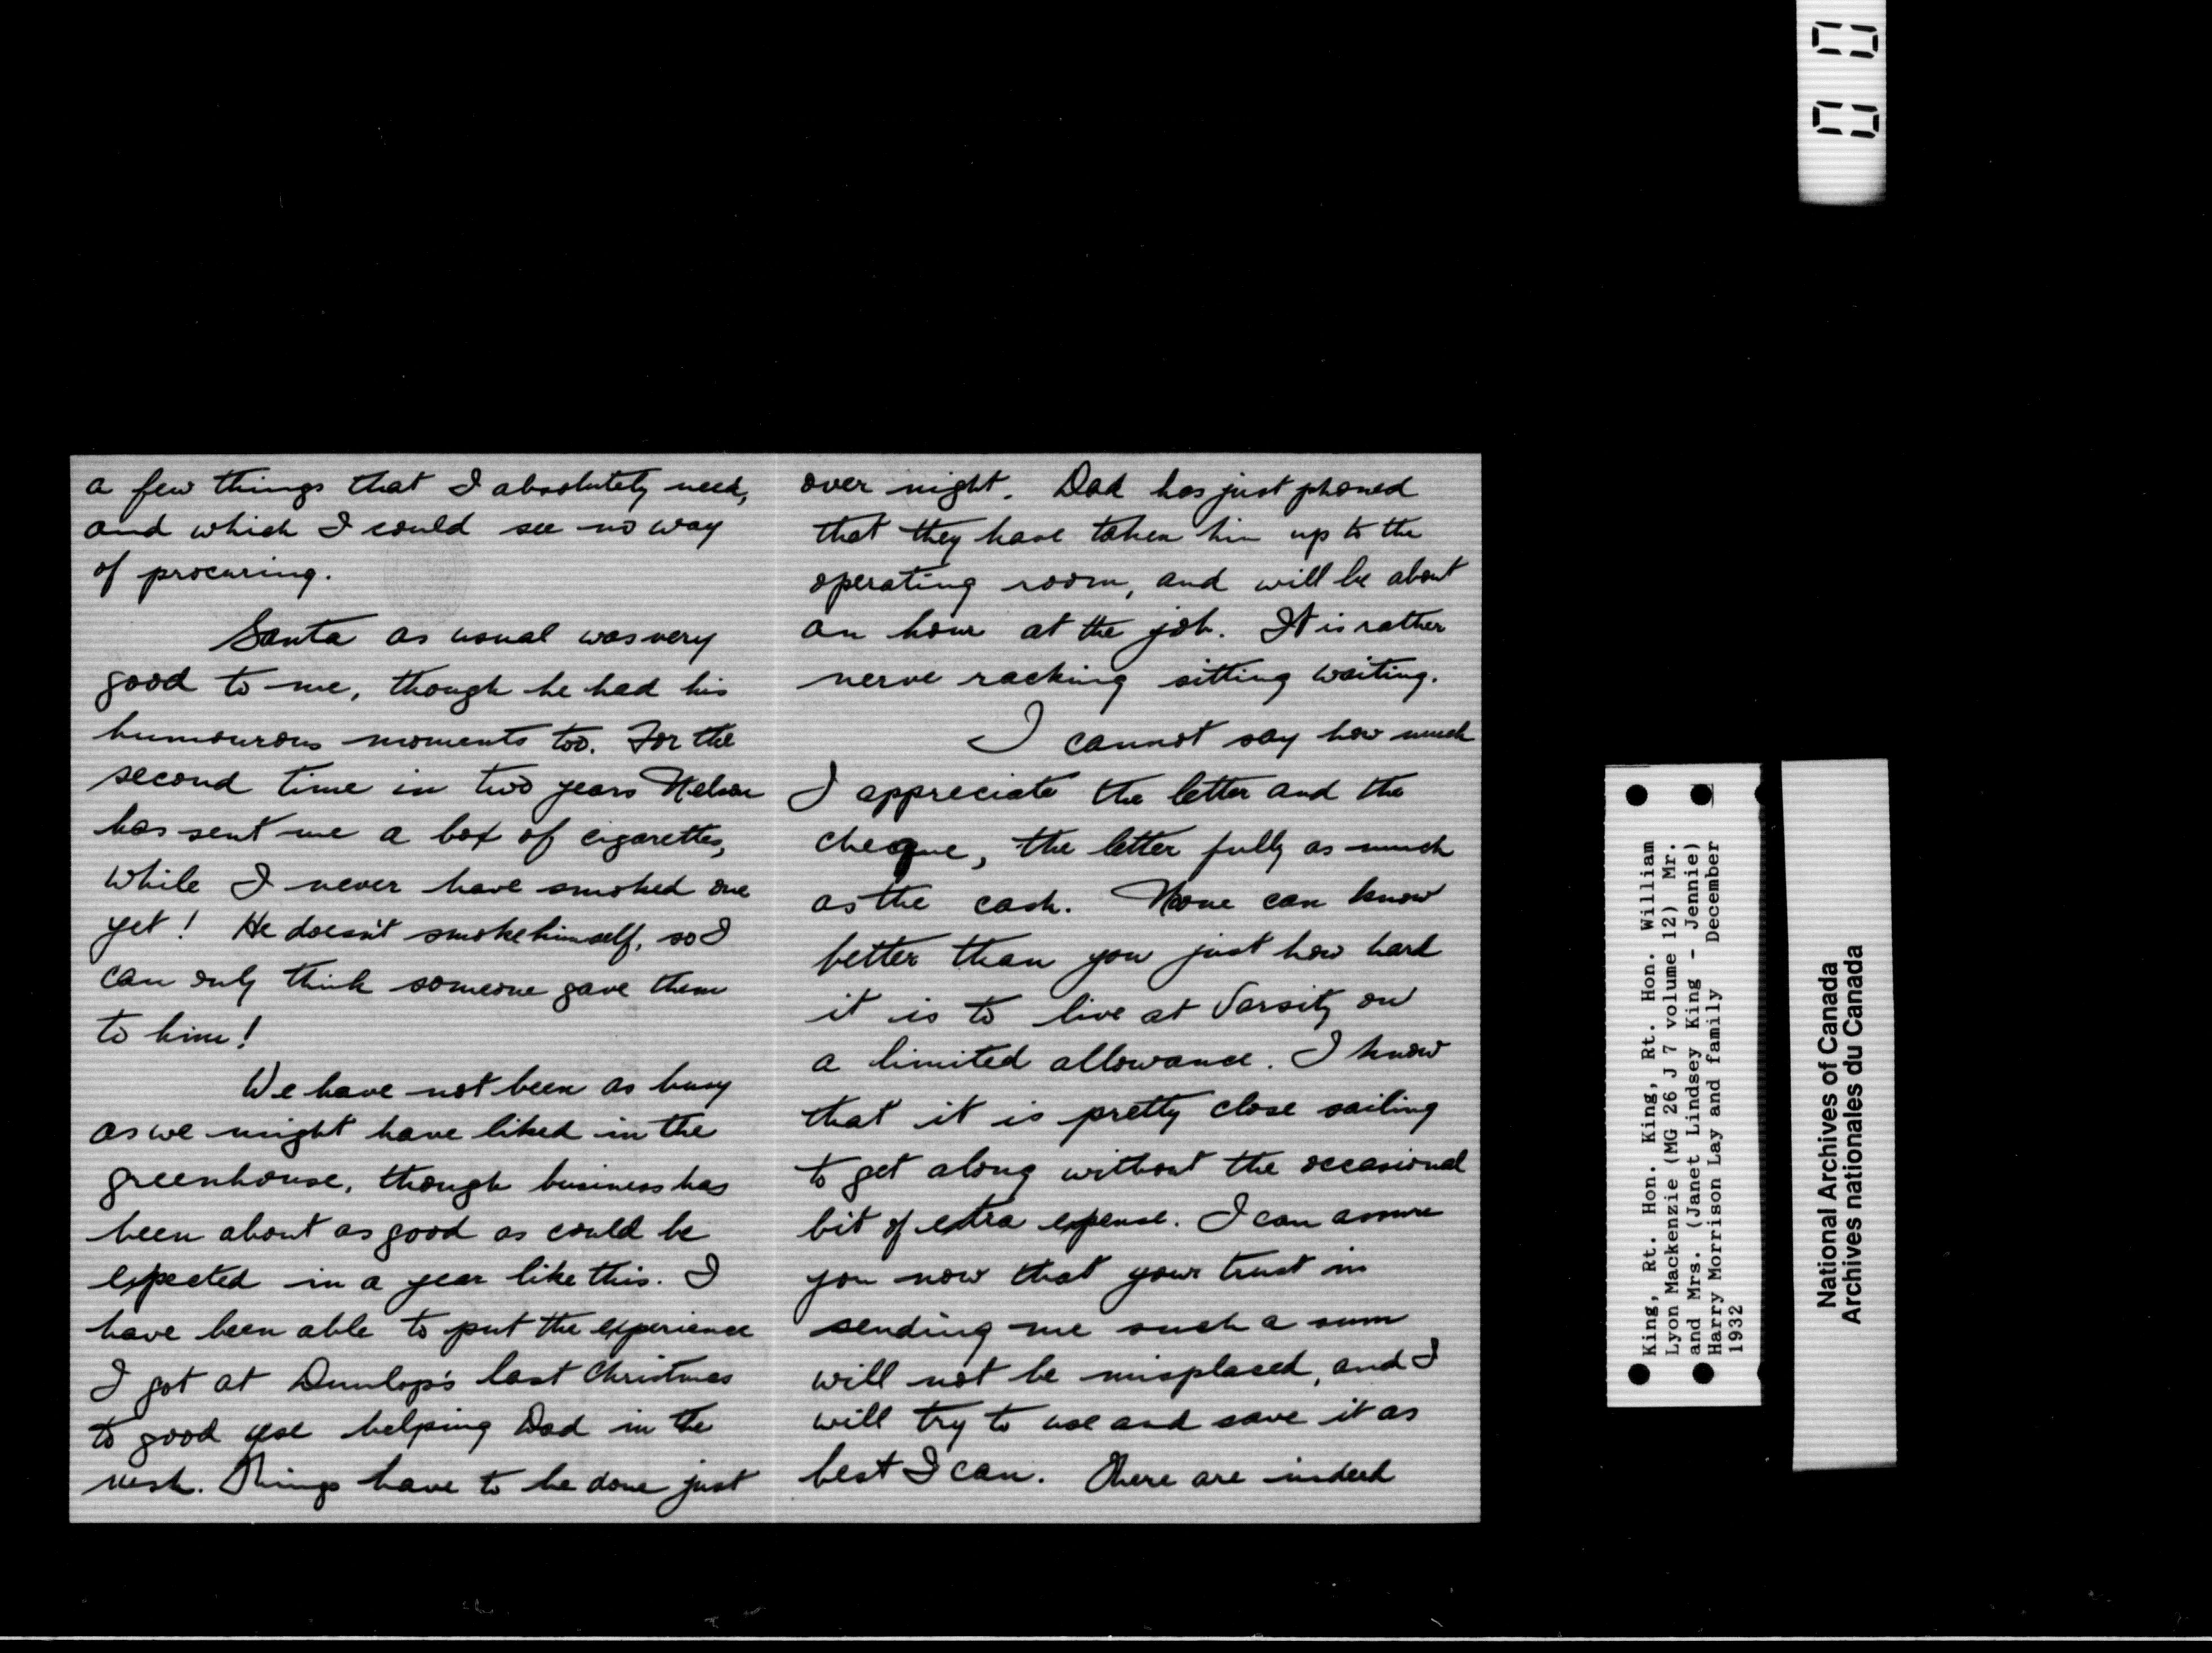 a few things that I absolutely need,
and which I could see no way
of procuring.
Santa as usual was very
good to me, though he had his
humourous moments too. For the
second time in two years Nelson
has sent me a box of cigarettes,
while I never have smoked one
yet! He doesn't smoke himself, so I
can only think someone gave them
to him!
We have not been as busy
as we might have liked in the
greenhouse, though business has
been about as good as could be
expected in a year like this. I
have been able to put the experience
I got at Dunlop's last Christmas
to good use helping Dad in the
rush. Things have to be done just
over night. Dad has just phoned
that they have taken him up to the
operating room, and will be about
an hour at the job. It is rather
nerve racking sitting waiting.
I cannot say how much
I appreciate the letter and the
cheque, the letter fully as much
as the cash. None can know
better than you just how hard
it is to live at Varsity on
a limited allowance. I know
that it is pretty close sailing
to get along without the occasional
bit of extra expense. I can assure
you now that your trust in
sending me such a sum
will not be misplaced, and I
will try to use and save it as
best I can. There are indeed
King, Rt. Hon. King, Rt. Hon. William
Lyon Mackenzie (MG 26 J 7 volume 12) Mr.
and Mrs. (Janet Lindsey King - Jennie)
Harry Morrison Lay and family December
1932
National Archives of Canada
Archives nationales du Canada